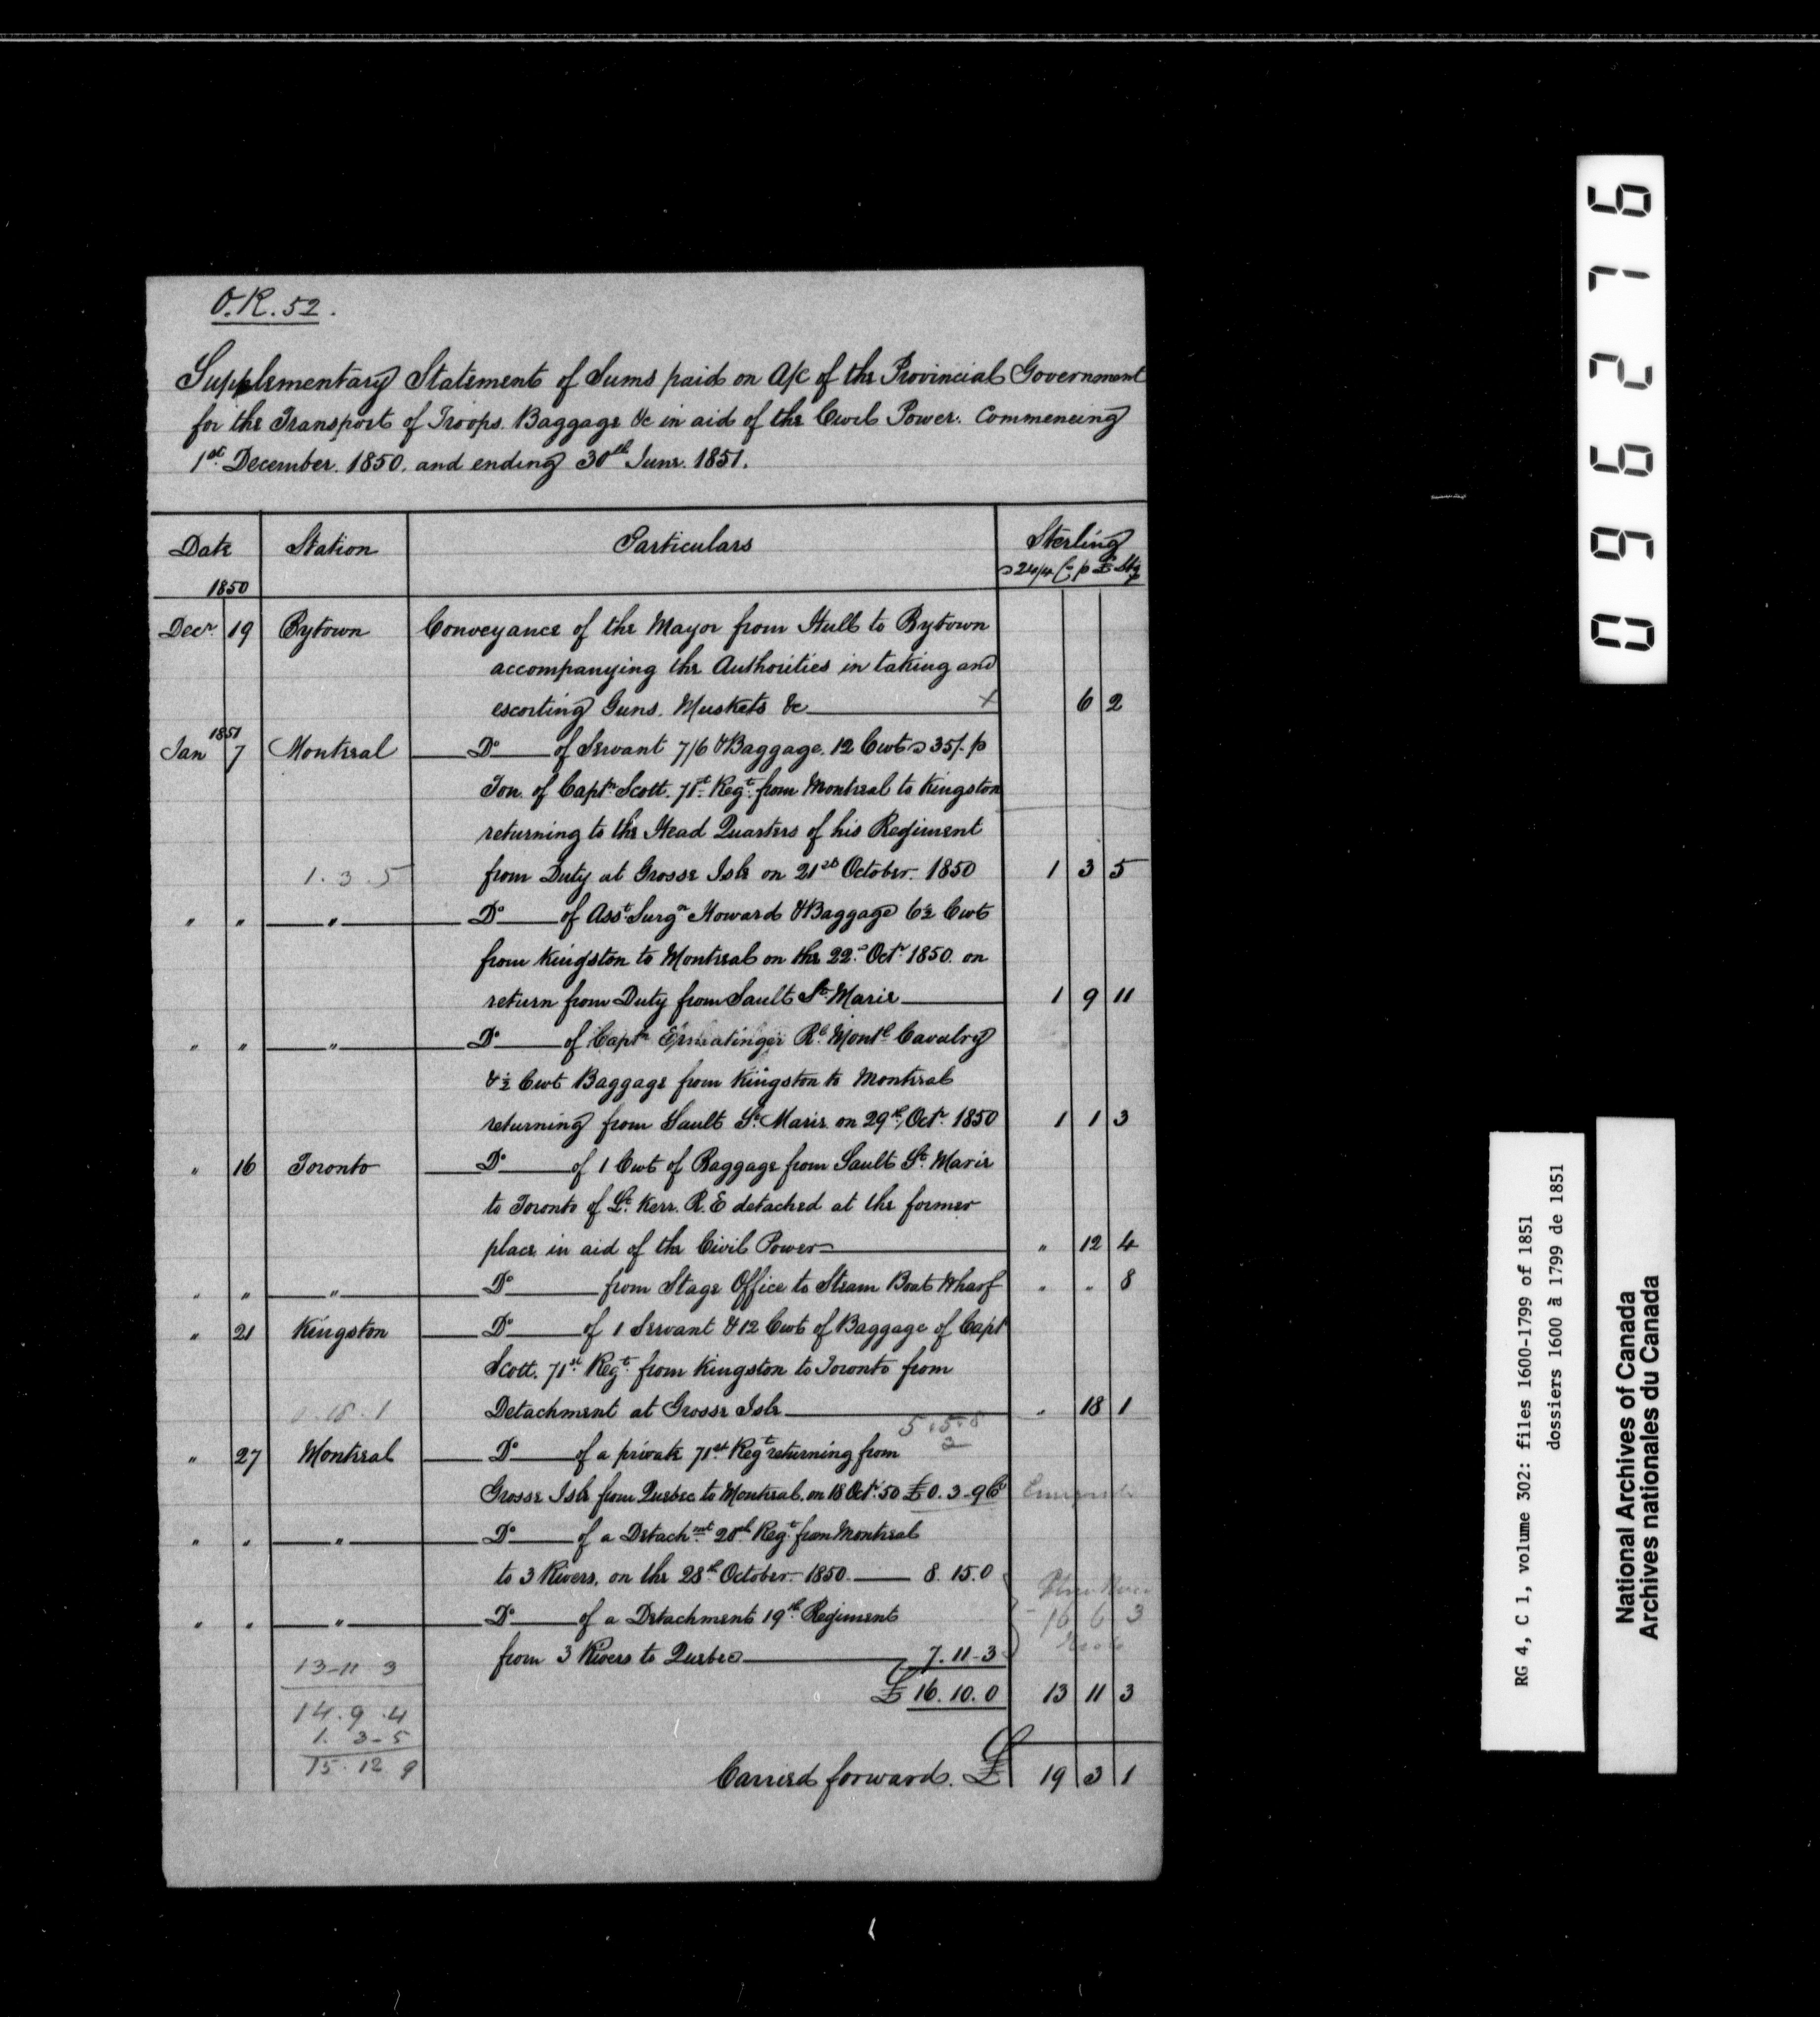 O.R. 52.
Supplementary Statement of Sums paid on A/c of the Provincial Government
for the Transport of Troops. Baggage &c in aid of the Civil Power. Commencing
1st December. 1850. and ending 30th June. 1851.
Date Station Particulars Sterling
1850 24/4 p £ Stg
Decr 19 Bytown Conveyance of the Mayor from Hull to Bytown
accompanying the Authorities in taking and
escorting Guns. Muskets &c x 6 2
1851
Jan 7 Montreal Do of Servant 7/6 & Baggage. 12 Cwt @ 35/- p
Ton. of Captn Scott. 71st Regt from Montreal to Kingston
returning to the Head Quarters of his Regiment
1. 3. 5 from Duty at Grosse Isle on 21st October. 1850 1 3 5
" " " Do of Asst Surgn Howard & Baggage 6½ Cwt
from Kingston to Montreal on the 22d Octr 1850. on
return from Duty from Sault St Marie 1 9 11
" " " Do of Captn Ermatinger Rl Montl Cavalry
& ½ Cwt Baggage from Kingston to Montreal
returning from Sault St Marie on 29th Octr 1850 1 1 3
" 16 Toronto Do of 1 Cwt of Baggage from Sault St Marie
to Toronto of Lt Kerr. R.E detached at the former
place in aid of the Civil Power " 12 4
" " " Do from Stage Office to Steam Boat Wharf " " 8
" 21 Kingston Do of 1 Servant & 12 Cwt of Baggage of Capt
Scott. 71st Regt from Kingston to Toronto from
18. 1 Detachment at Grosse Isle " 18 1
5. 5. 8
2
" 27 Montreal Do of a private 71st Regt returning from
Grosse Isle from Quebec to Montreal. on 18 Octr 50 £0. 3-9
" " " Do of a Detachmt 20th Regt from Montreal
to 3 Rivers. on the 28th October 1850 8. 15. 0
" " " Do of a Detachment 19th Regiment
16 6 3
from 3 Rivers to Quebec 7. 11-3
13-11 3
£ 16. 10. 0 13 11 3
14. 9. 4
1. 3-5
15. 12 9
Carried forward. £ 19 3 1
096276
RG 4, C 1, volume 302: files 1600-1799 of 1851
dossiers 1600 à 1799 de 1851
National Archives of Canada
Archives nationales du Canada